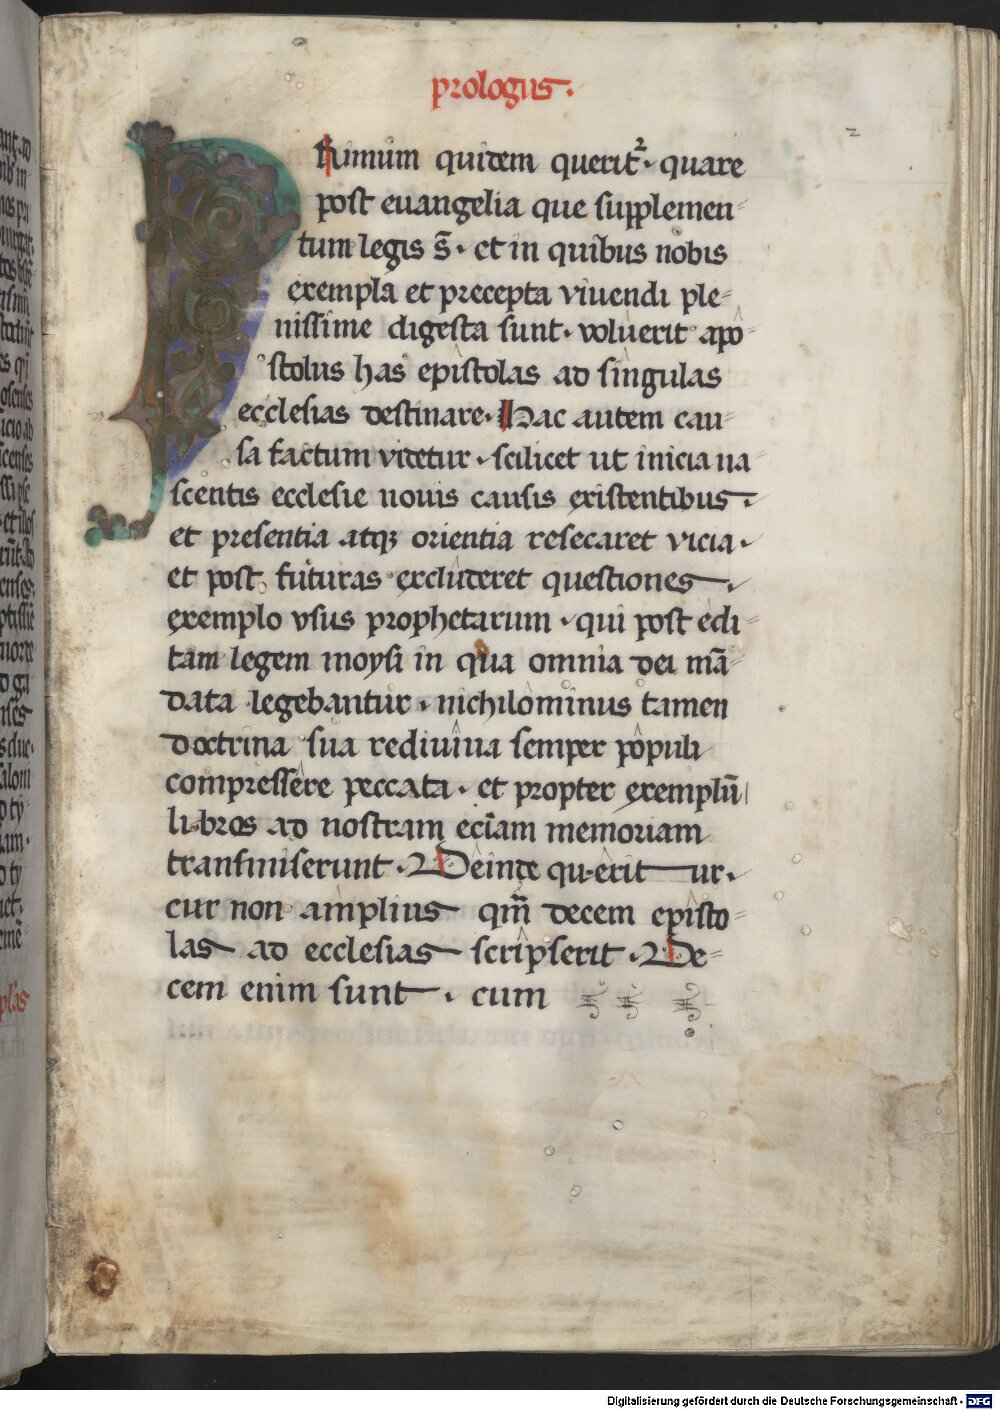 prologus.
PRimum quidem querit². quare
post euangelia que supplemen-
tum legis s̄. et in quibus nobis
exempla et precepta viuendi ple-
nissime digesta sunt. voluerit apo-
stolus has epistolas ad singulas
ecclesias destinare. Hac autem cau-
sa factum videtur. scilicet ut inicia na-
scentis ecclesie nouis causis existentibus.
et presentia atqꝫ orientia resecaret vicia.
et post futuras excluderet questiones.
exemplo vsus prophetarum. qui post edi-
tam legem moysi in qua omnia dei mā-
data legebantur. nichilominus tamen
doctrina sua rediuiua semper populi
compressere peccata. et propter exemplū
libros ad nostram eciam memoriam
transmiserunt. Deinde querit ur.
cur non amplius qm̄ decem episto-
las ad ecclesias scripserit. De-
cem enim sunt. cum
Digitalisierung gefördert durch die Deutsche Forschungsgemeinschaft - DFG